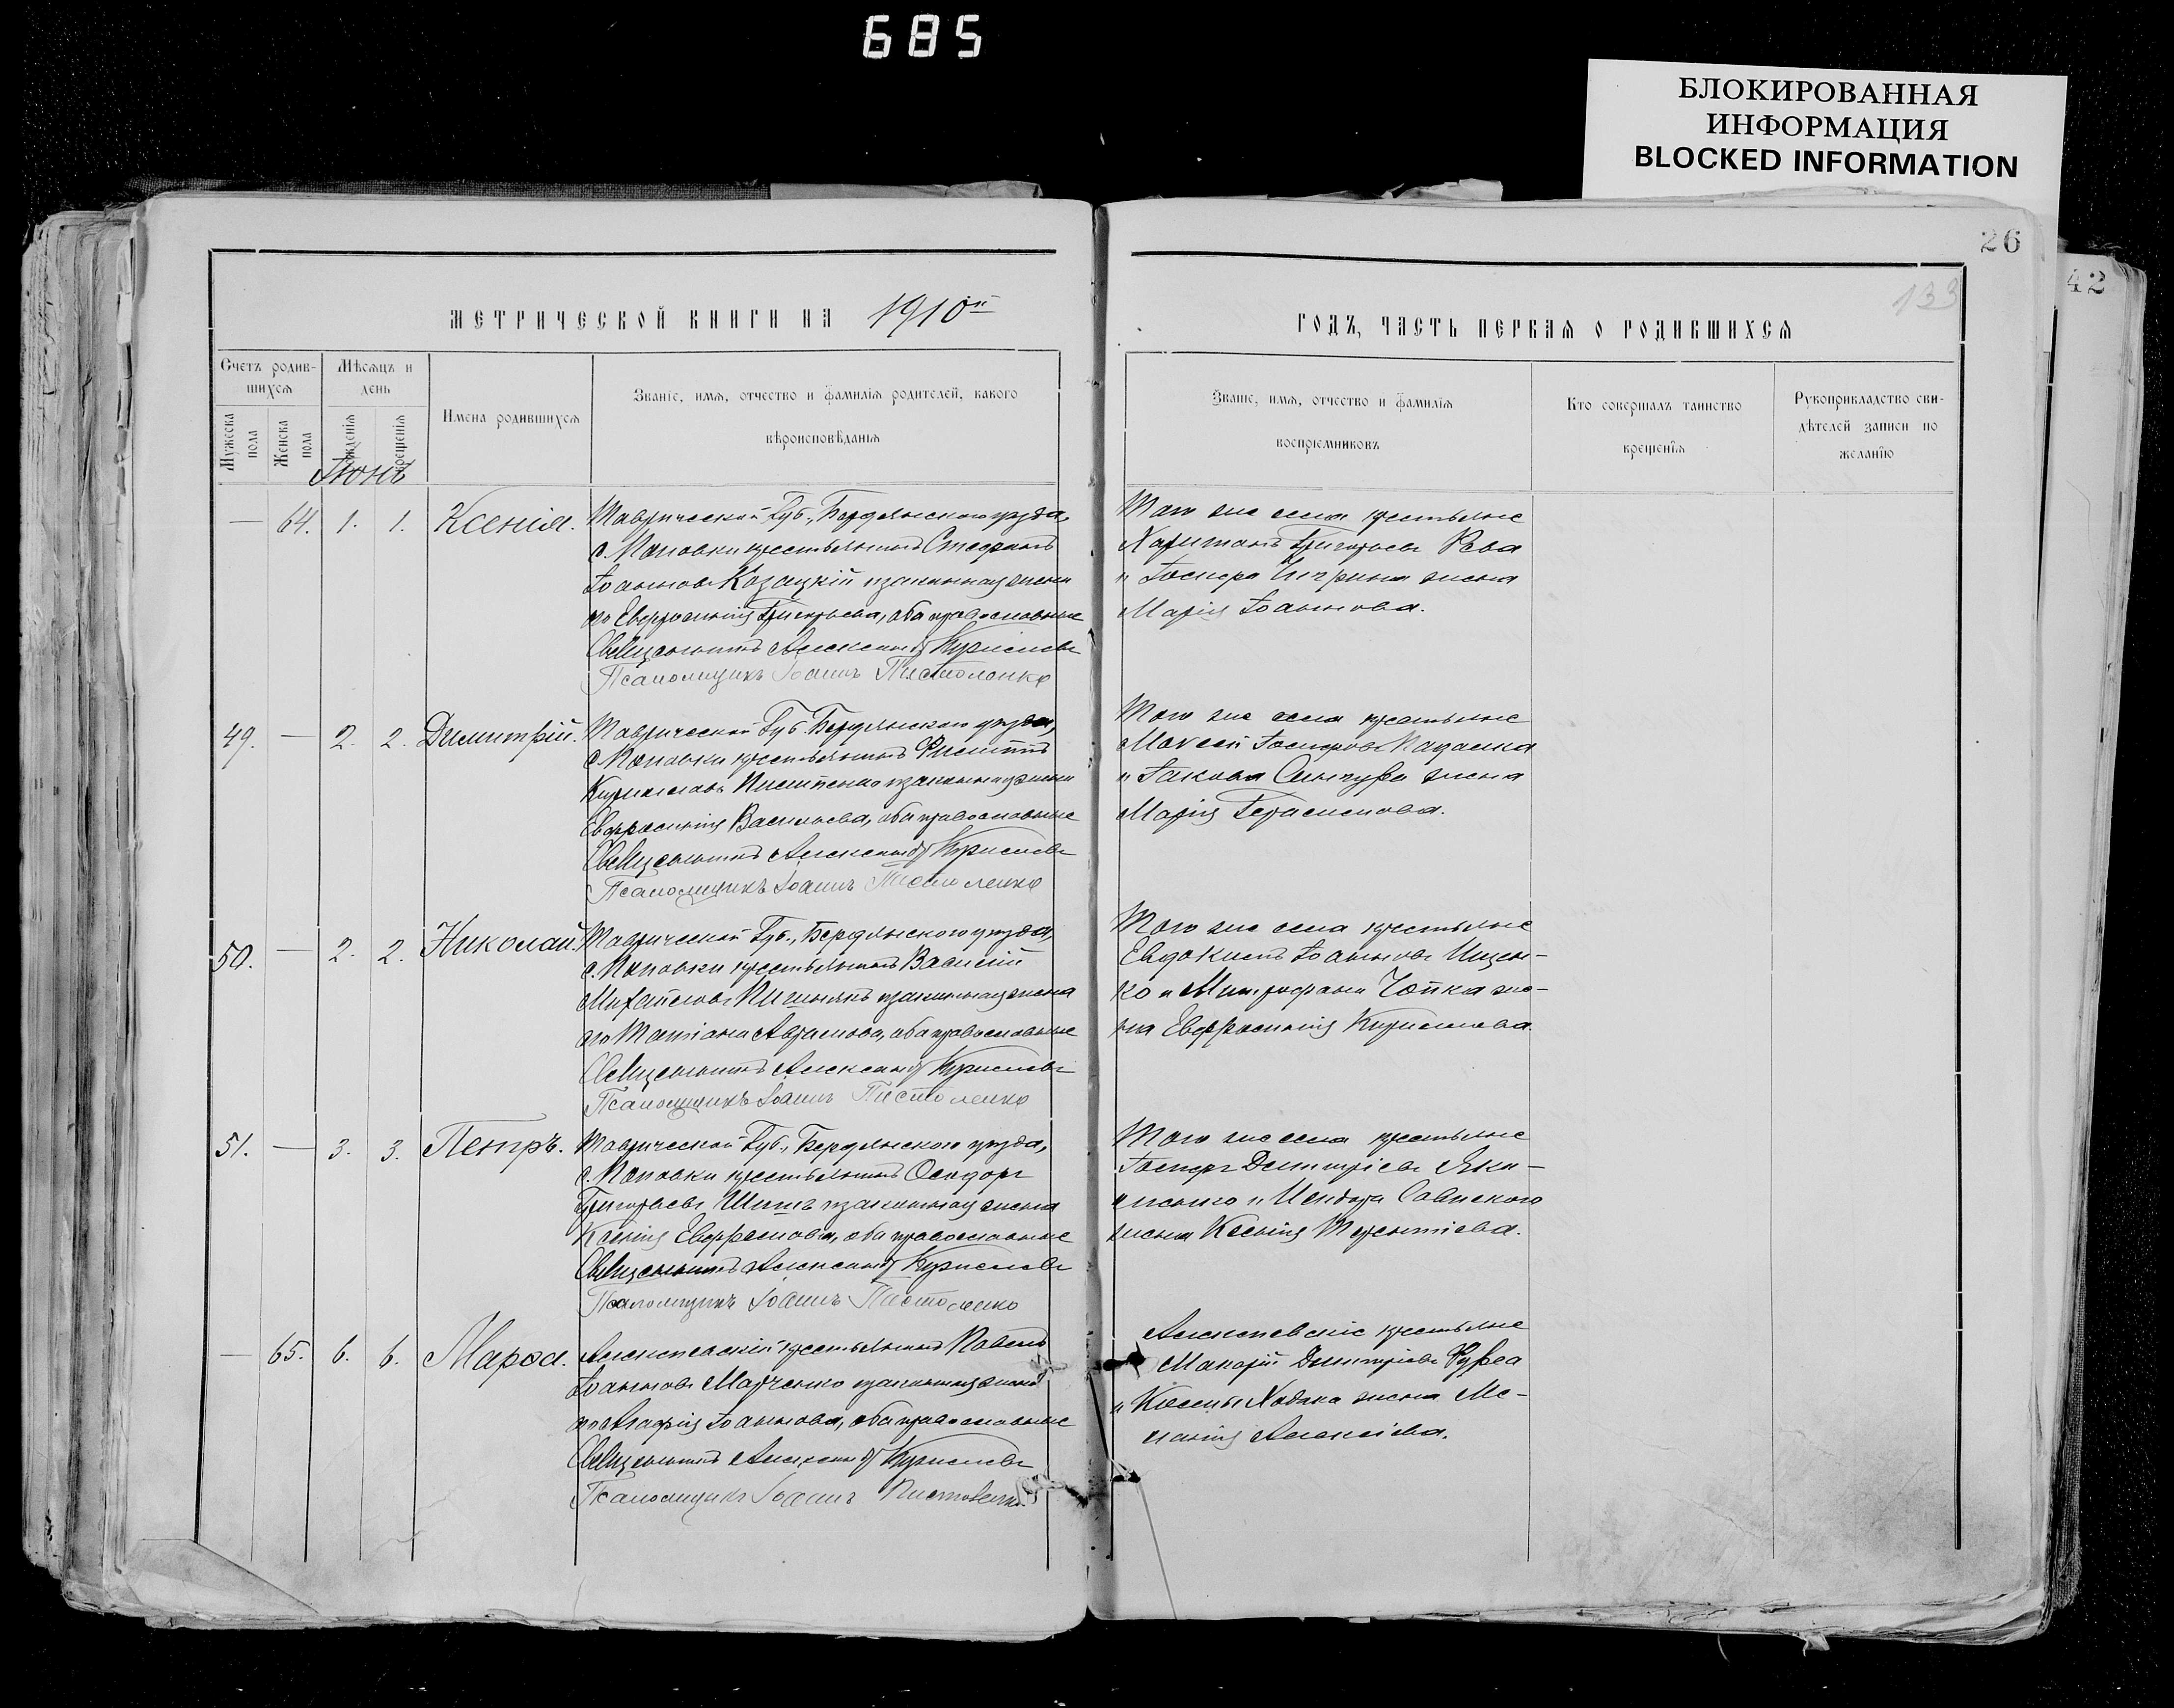 685
БЛОКИРОВАННАЯ
ИНФОРМАЦИЯ
BLOCKED INFORMATION
26
42
133
МЕТРИЧЕСКОЙ КНИГИ НА 1910й
ГОДЪ, ЧАСТЬ ПЕРВАЯ О РОДИВШИХСЯ
Счетъ родив-
шихся
Мужеска пола
Женска пола
Мѣсяцъ и
день
рожденія
крещенія
Имена родившихся
Званіе, имя, отчество и фамилія родителей, какого
вѣроисповѣданія
Званіе, имя, отчество и фамилія
воспріемниковъ
Кто совершалъ таинство
крещенія
Рукоприкладство сви-
дѣтелей записи по
желанію
Іюнь
— 64. 1. 1. Ксенія.
Таврической Губ., Бердянскаго уѣзда,
с. Поповки крестьянинъ Стефанъ
Іоанновъ Козацкій и законная жена
его Евфросинія Григорьева, оба православные
Священникъ Александръ Кириловъ
Псаломщикъ Іоаннъ
Того же села крестьяне
Харитонъ Григорьевъ Рева
и Іосифа жена
Марія Іоаннова.
49. — 2. 2. Димитрій.
Таврической Губ. Бердянскаго уѣзда,
с. Поповки крестьянинъ Филиппъ
Кирилловъ и законная жена
Евфросинія Васильева, оба православные
Священникъ Александръ Кириловъ
Псаломщикъ Іоаннъ
Того же села крестьяне
Моѵсей Іосифовъ
и Іакова жена
Марія Герасимова.
50. — 2. 2. Николай.
Таврической Губ., Бердянскаго уѣзда,
с. Поповки крестьянинъ Василій
Михайловъ и законная жена
его Татіана Аврамова, оба православные
Священникъ Александръ Кириловъ
Псаломщикъ Іоаннъ
Того же села крестьяне
Евдокимъ Іоанновъ Ищен-
ко и Митрофана Чопка же-
на Евфросинія Кириллова.
51. — 3. 3. Петръ.
Таврической Губ., Бердянскаго уѣзда,
с. Поповки крестьянинъ Ѳеодоръ
Григорьевъ и законная жена
Ксенія Евфремова, оба православные
Священникъ Александръ Кириловъ
Псаломщикъ Іоаннъ
Того же села крестьяне
Іосифъ Димитріевъ Яки-
менко и Исидора Савискаго
жена Ксенія Терентіева.
— 65. 6. 6. Марѳа.
крестьянинъ Павелъ
Іоанновъ Марченко и законная жена
его Агафія Іоаннова, оба православные
Священникъ Александръ Кириловъ
Псаломщикъ Іоаннъ
крестьяне
Макарій Димитріевъ
и Космы жена Ме-
ланія Алексіева.